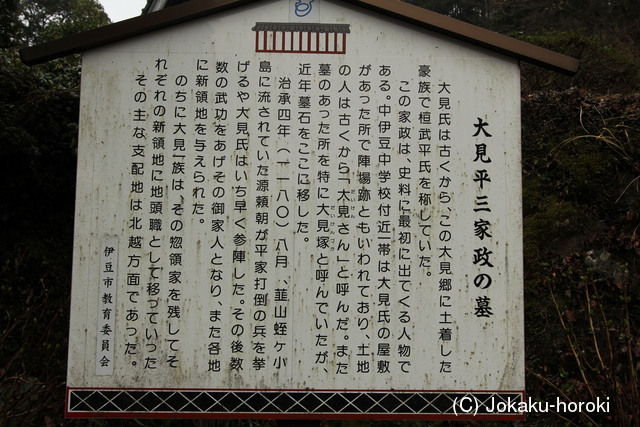 大見平三家政の墓
大見氏は古くから、この大見郷に土着した
豪族で桓武平氏を称していた。
この家政は、史料に最初に出てくる人物で
ある。中伊豆中学校付近一帯は大見氏の屋敷
があった所で陣場跡ともいわれており、土地
の人は古くから「大見さん」と呼んだ。また
墓のあった所を特に大見塚と呼んでいたが
近年墓石をここに移した。
治承四年(一一八〇)八月、韮山蛭ヶ小
島に流されていた源頼朝が平家打倒の兵を挙
げるや大見氏はいち早く参陣した。その後数
数の武功をあげその御家人となり、また各地
に新領地を与えられた。
のちに大見一族は、その惣領家を残してそ
れぞれの新領地に地頭職として移っていった
その主な支配地は北越方面であった。
伊豆市教育委員会
(C) Jokaku-horoki